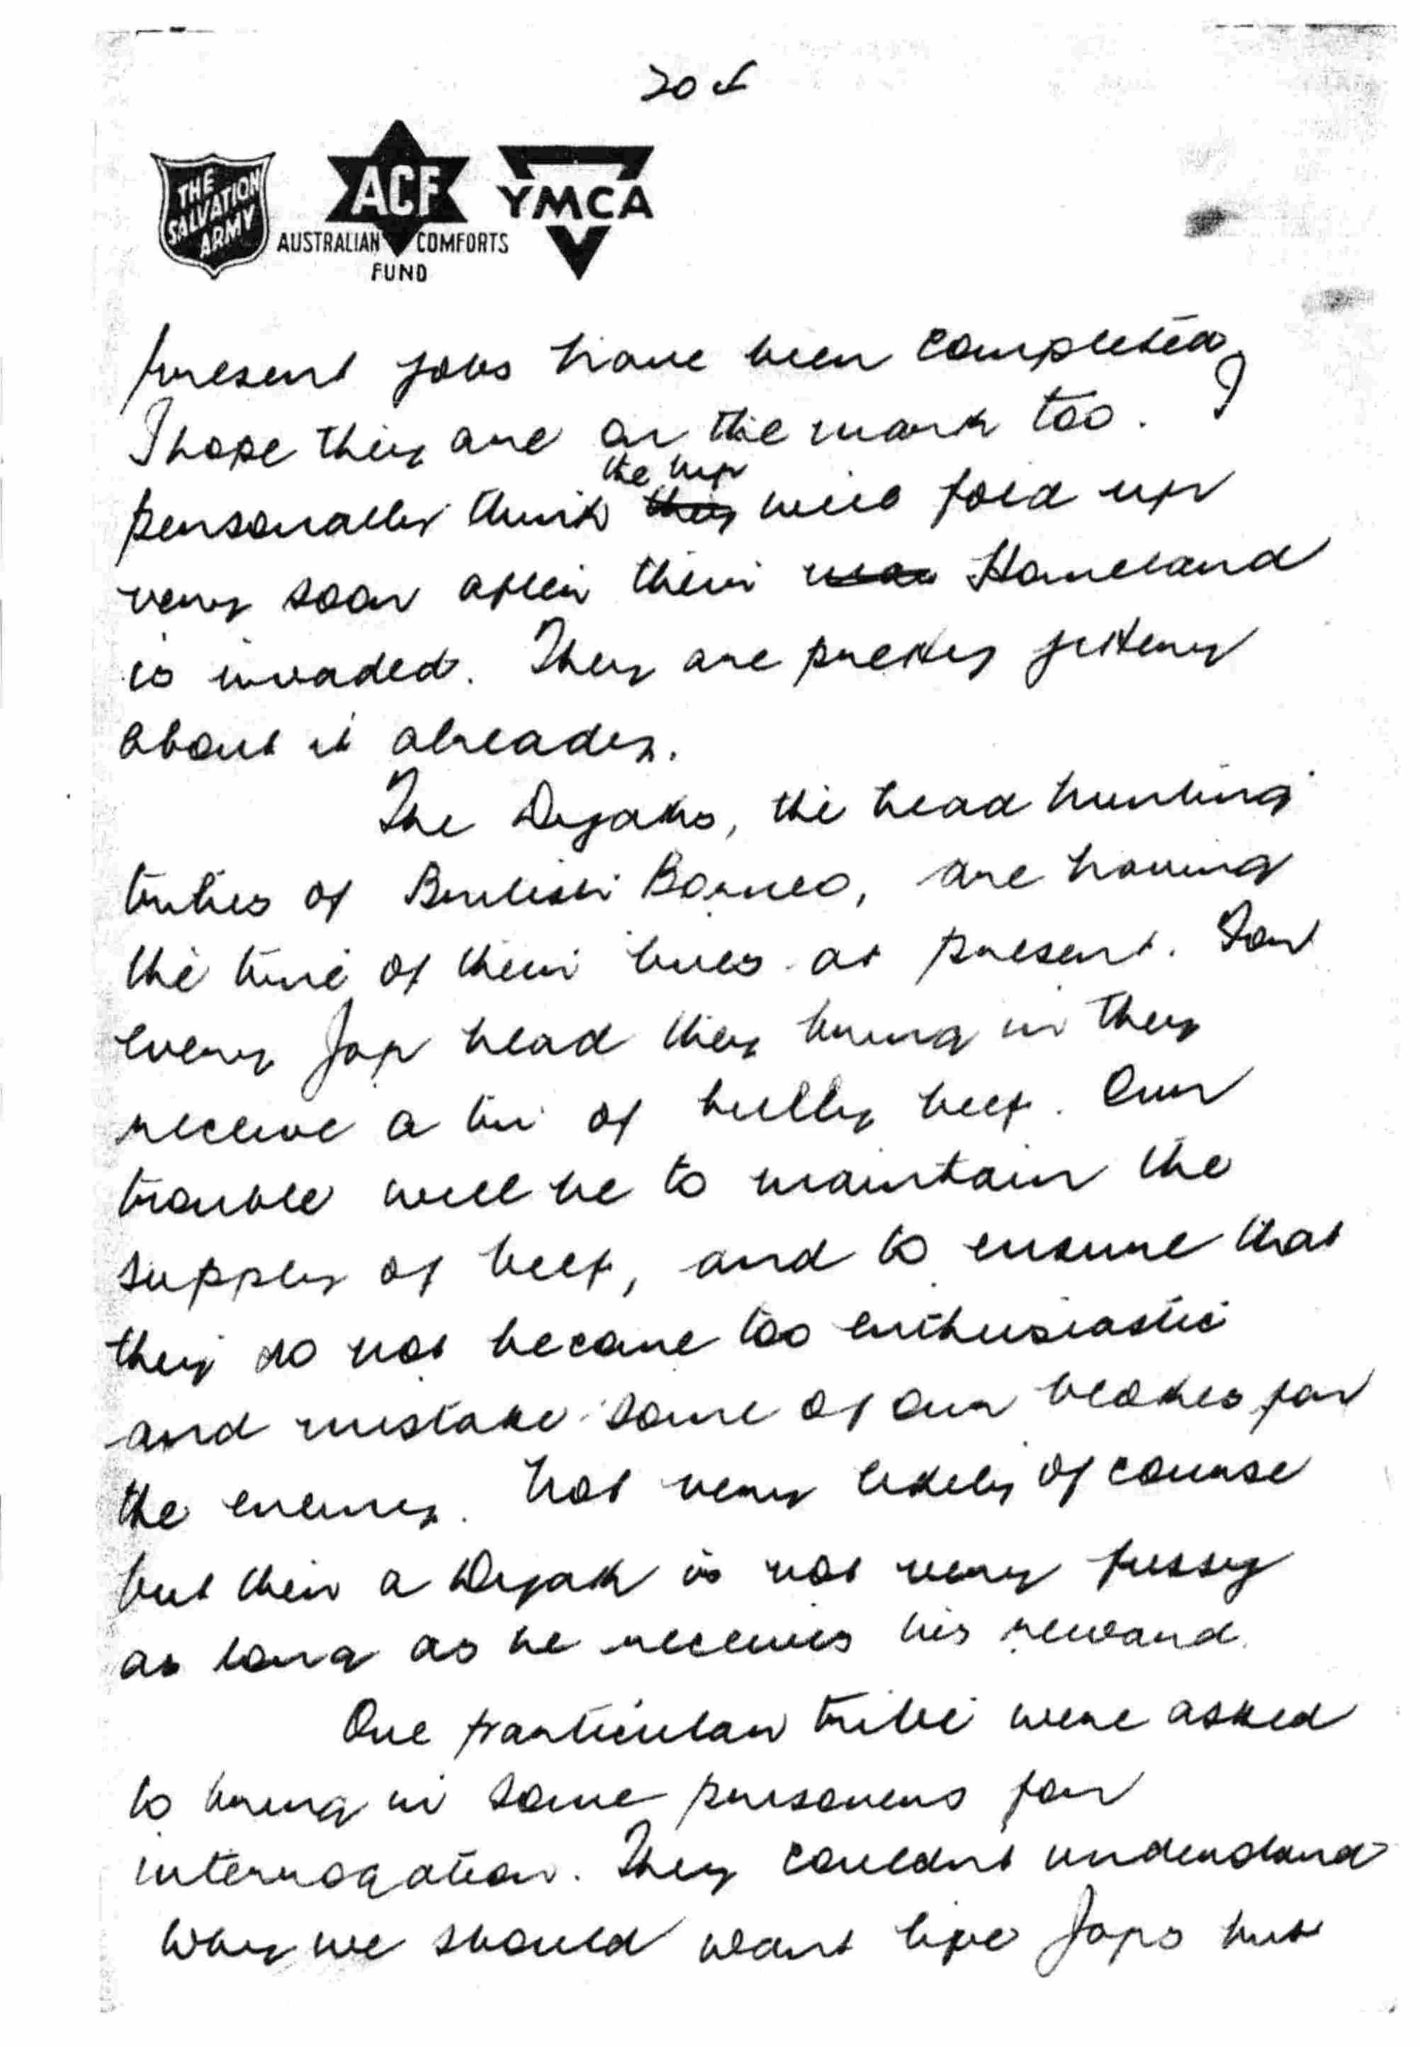 204
THE
SALVATION
ARMY
ACF
AUSTRALIAN COMFORTS
FUND
YMCA
present jobs have been completed,
I hope they are on the mark too. I
the nip
personally think they will fold up
very soon after their Homeland
is invaded. They are pretty jittery
about it already.
The Dyaks, the head hunting
tribes of British Borneo, are having
the time of their lives at present. For
every Jap head they bring in they
receive a tin of bully beef. Our
trouble will be to maintain the
supply of beef, and to ensure that
they do not become too enthusiastic
and mistake some of our blokes for
the enemy. Not very likely of course
but then a Dyak is not very fussy
as long as he receives his reward.
One particular tribe were asked
to bring in some prisoners for
interrogation. They couldnt understand
why we should want live Japs but